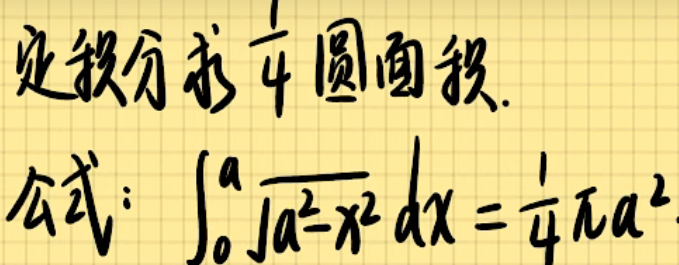 定积分求 1/4 圆面积.
公式: ∫₀ᵃ √(a²-x²) dx = 1/4 πa².